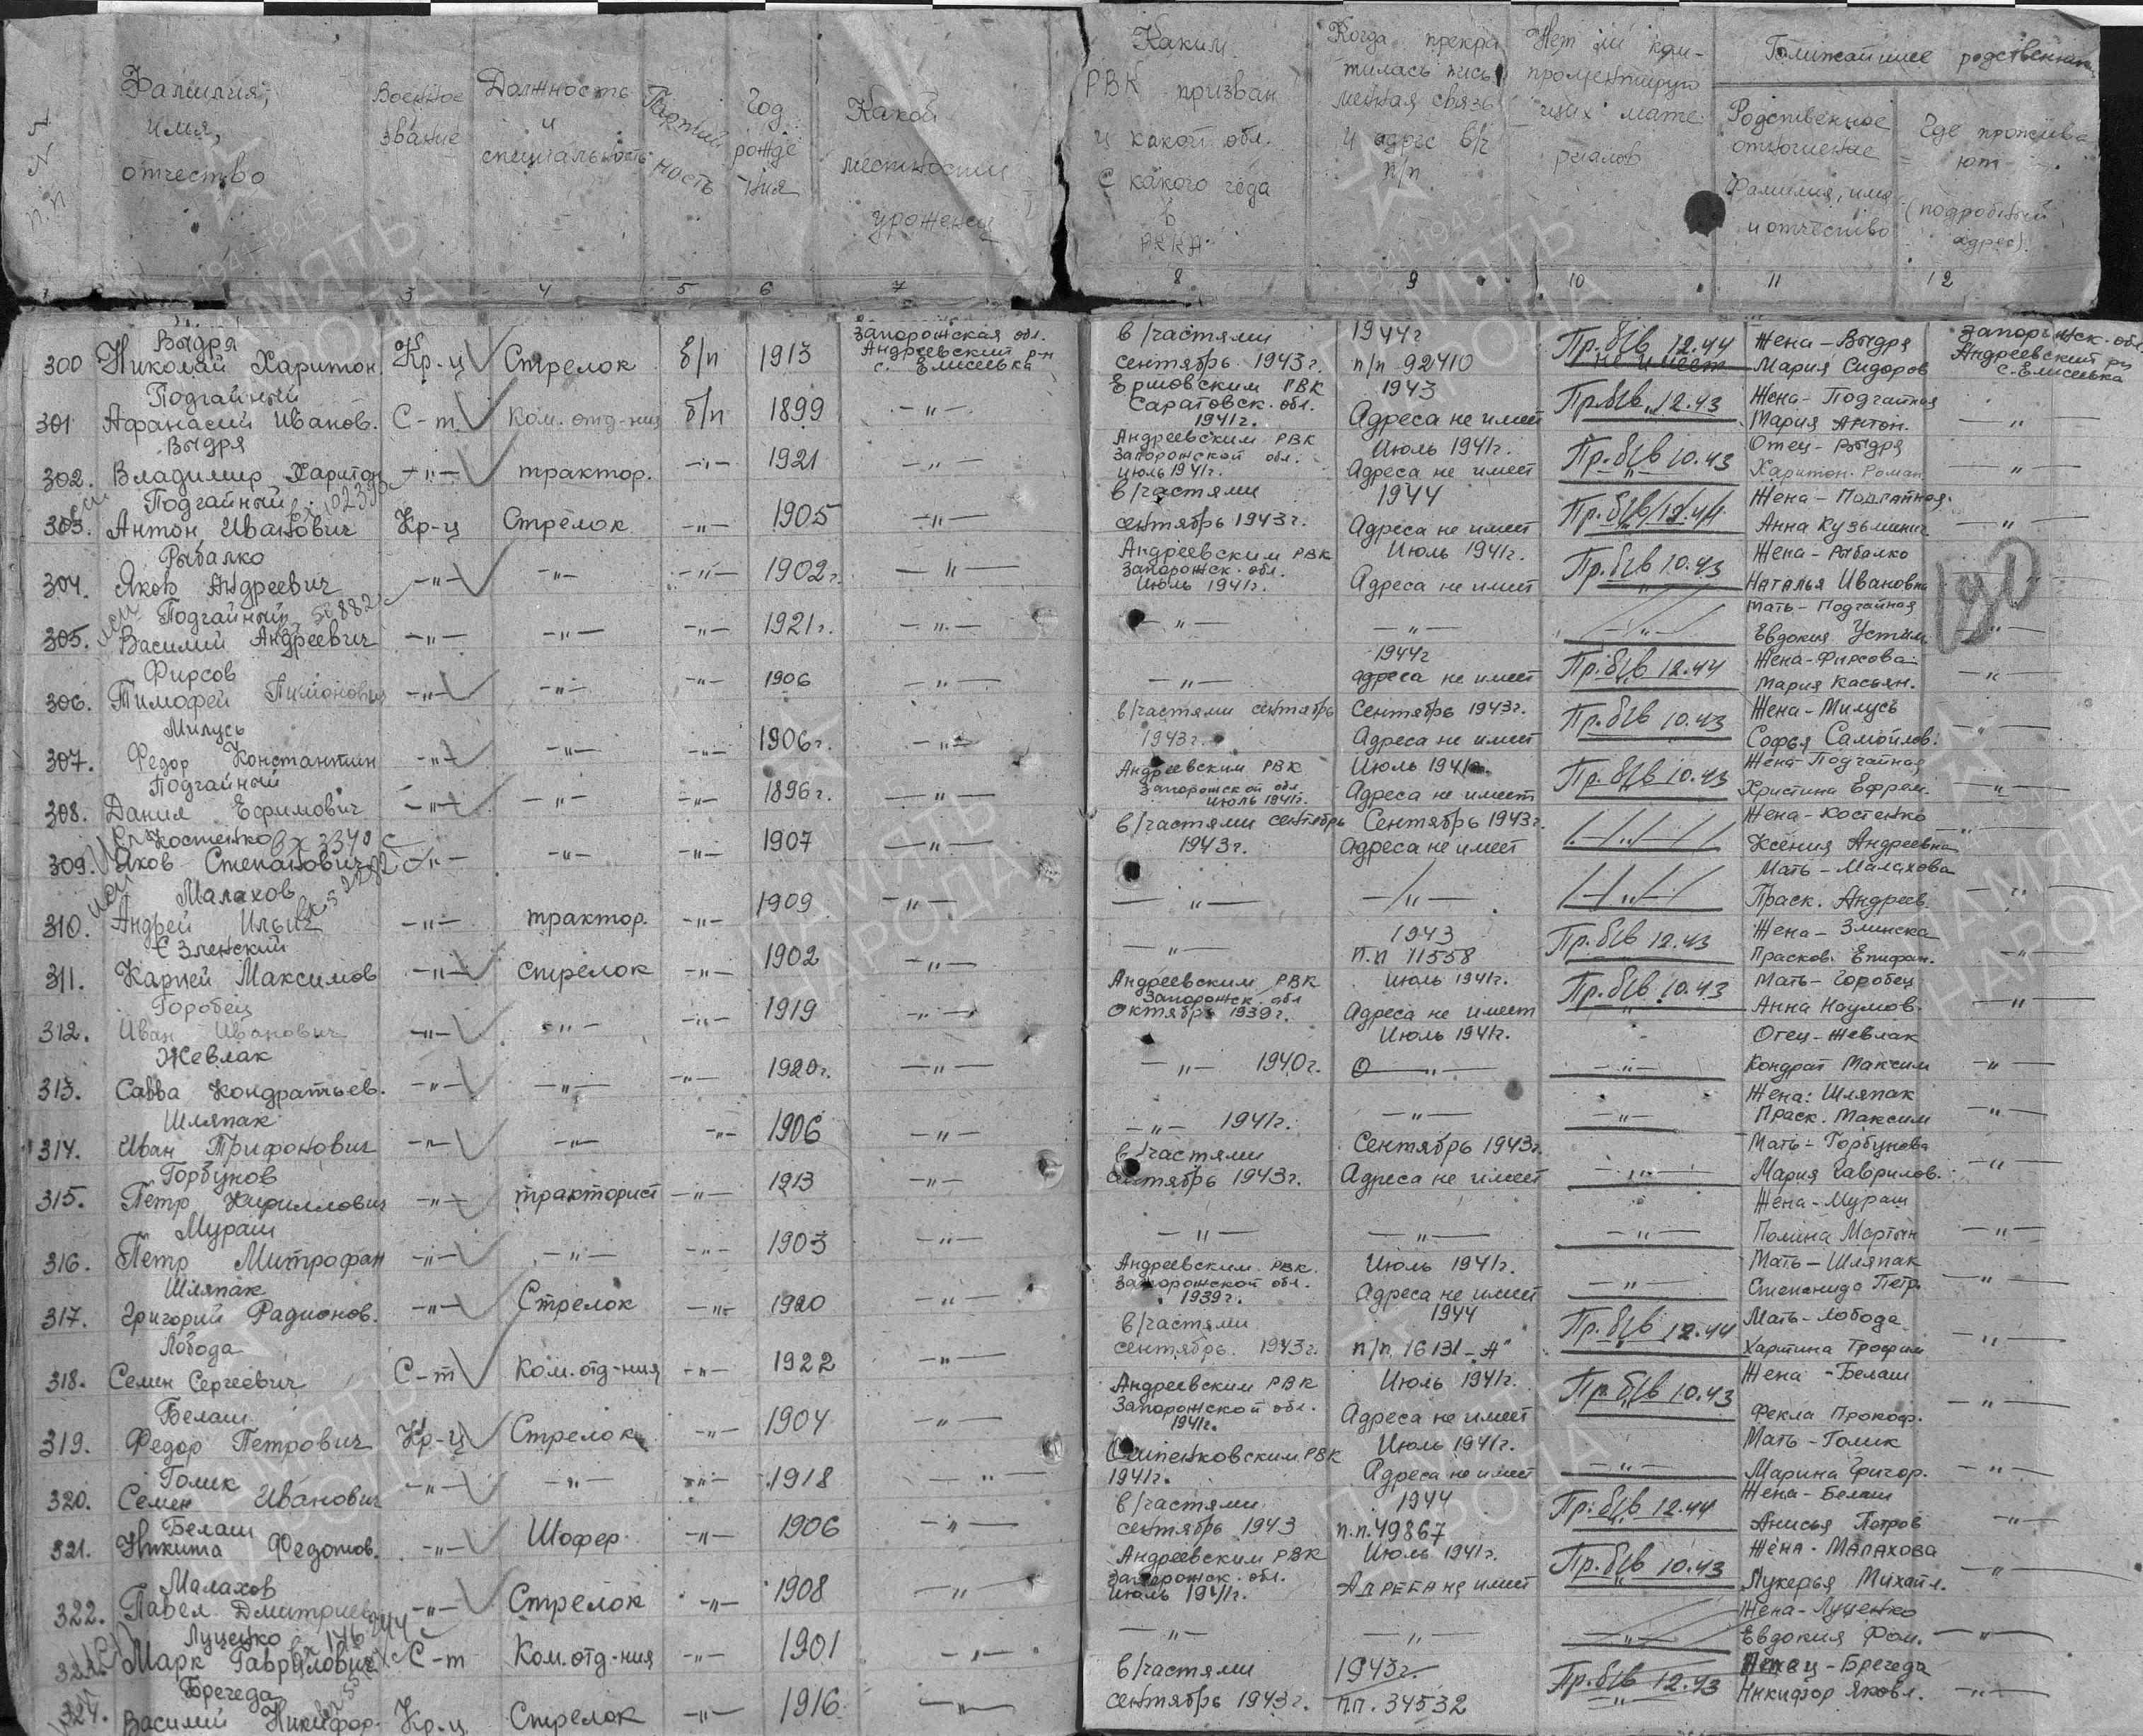 N N п.п
Фамилия, имя, отчество
Военное звание
Должность и специальность
Партийность
Год рождения
Какой местности уроженец
Каким РВК призван и какой обл. с какого года в РККА
Когда прекратилась письменная связь и адрес в/ч п/п
Нет ли компрометирующих материалов
Ближайшие родственники
Родственное отношение Фамилия, имя и отчество
Где проживают (подробный адрес).
3 4 5 6 7 8 9 10 11 12
300 Выдря Николай Харитон. Кр-ц Стрелок б/п 1913 Запорожская обл. Андреевский р-н с. Елисеевка в/частями сентябрь 1943г. 1944г п/п 92410 Пр. б/в 12.44 Жена - Выдря Мария Сидоров Запорожск. обл. Андреевский рн с. Елисеевка
301 Подгайный Афанасий Иванов. С-т Ком. отд-ния б/п 1899 -"- Ершовским РВК Саратовск. обл. 1941г. 1943 Адреса не имеет Пр. б/в 12.43 Жена - Подгайная Мария Антон. -"-
302. Выдря Владимир Харитон -"- трактор. -"- 1921 -"- Андреевским РВК Запорожской обл. июль 1941г. Июль 1941г. Адреса не имеет Пр. б/в 10.43 Отец - Выдря Харитон Роман -"-
303. Подгайный Антон Иванович Кр-ц Стрелок -"- 1905 -"- в/частями сентябрь 1943г. 1944 Адреса не имеет Пр. б/в 12.44 Жена - Подгайная Анна Кузьминич -"-
304. Рыбалко Яков Андреевич -"- -"- -"- 1902г. -"- Андреевским РВК Запорожск. обл. Июль 1941г. Июль 1941г. Адреса не имеет Пр. б/в 10.43 Жена - Рыбалко Наталья Ивановна
305. Подгайный Василий Андреевич -"- -"- -"- 1921г. -"- -"- -"- -"- Мать - Подгайная Евдокия Устим. -"-
306. Фирсов Тимофей -"- -"- -"- 1906 -"- -"- 1944г адреса не имеет Пр. б/в 12.44 Жена - Фирсова Мария Касьян. -"-
307. Милусь Федор Константин -"- -"- -"- 1906г. -"- в/частями сентябрь 1943г. Сентябрь 1943г. Адреса не имеет Пр. б/в 10.43 Жена - Милусь Софья Самойлов. -"-
308. Подгайный Данил Ефимович -"- -"- -"- 1896г. -"- Андреевским РВК Запорожской обл июль 1941г. Июль 1941г. Адреса не имеет Пр. б/в 10.43 Жена Подгайная Христина Ефрем. -"-
309. Костенко Яков Степанович -"- -"- -"- 1907 -"- в/частями сентябрь 1943г. Сентябрь 1943г. Адреса не имеет -"- Жена - Костенко Ксения Андреевна -"-
310. Малахов Андрей Ильич -"- трактор. -"- 1909 -"- -"- -"- -"- Мать - Малахова Праск. Андреев. -"-
311. Зленский Карней Максимов -"- Стрелок -"- 1902 -"- -"- 1943 п.п 11558 Пр. б/в 12.43 Жена - Злинска Прасков. Епифан. -"-
312. Горобец Иван Иванович -"- -"- -"- 1919 -"- Андреевским РВК Запорожск. обл октябрь 1939г. Июль 1941г. Адреса не имеет Пр. б/в 10.43 Мать - Горобец Анна Наумов. -"-
313. Жевлак Савва Кондратьев. -"- -"- -"- 1920г. -"- -"- 1940г. Июль 1941г. -"- -"- Отец - Жевлак Кондрат Максим -"-
314. Шляпак Иван Трифонович -"- -"- -"- 1906 -"- -"- 1941г. -"- -"- Жена: Шляпак Праск. Максим -"-
315. Горбунов Петр Кириллович -"- тракторист -"- 1913 -"- в/частями сентябрь 1943г. Сентябрь 1943г. Адреса не имеет -"- Мать - Горбунова Мария Гаврилов. -"-
316. Мураш Петр Митрофан -"- -"- -"- 1903 -"- -"- -"- -"- Жена - Мураш Полина Мартын -"-
317. Шляпак Григорий Радионов. -"- Стрелок -"- 1920 -"- Андреевским РВК. Запорожской обл. 1939г. Июль 1941г. Адреса не имеет -"- Мать - Шляпак Степанида Петр. -"-
318. Лобода Семен Сергеевич С-т Ком. отд-ния -"- 1922 -"- в/частями сентябрь. 1943г. 1944 п/п. 16131-"А" Пр. б/в 12.44 Мать - Лобода Харитина Трофим -"-
319. Белаш Федор Петрович Кр-ц Стрелок -"- 1904 -"- Андреевским РВК Запорожской обл. 1941г. Июль 1941г. Адреса не имеет Пр. б/в 10.43 Жена - Белаш Фекла Прокоф. -"-
320. Голик Семен Иванович -"- -"- -"- 1918 -"- Осипенковским РВК 1941г. Июль 1941г. Адреса не имеет -"- Мать - Голик Марина Григор. -"-
321. Белаш Никита Федотов. -"- Шофер -"- 1906 -"- в/частями сентябрь 1943 1944 п.п. 49867 Пр. б/в 12.44 Жена - Белаш Анисья Петров -"-
322. Малахов Павел Дмитриев -"- Стрелок -"- 1908 -"- Андреевским РВК Запорожск. обл. июль 1941г. Июль 1941г. Адреса не имеет Пр. б/в 10.43 Жена - Малахова Лукерья Михайл. -"-
323. Луценко Марк Гаврилович С-т Ком. отд-ния -"- 1901 -"- -"- -"- -"- Жена - Луценко Евдокия Фом. -"-
324. Брегеда Василий Никифор. Кр-ц Стрелок -"- 1916 -"- в/частями сентябрь 1943г. 1943г. п.п. 34532 Пр. б/в 12.43 Отец - Брегеда Никифор Яковл. -"-
ПАМЯТЬ НАРОДА
1941-1945